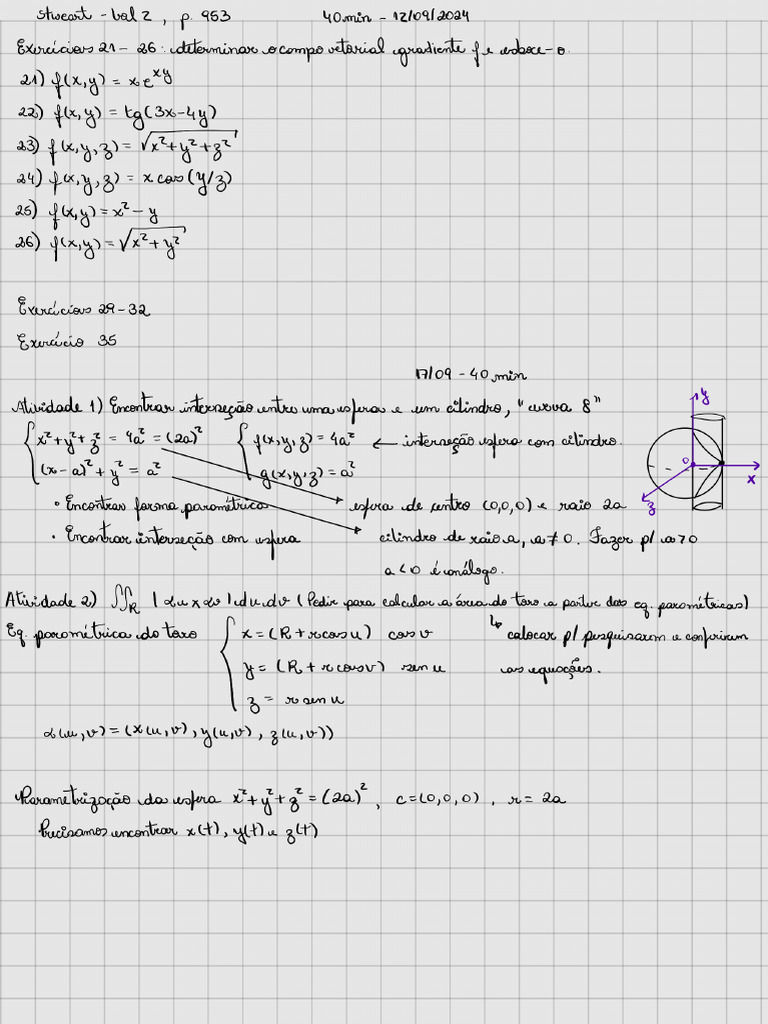 Stwart - vol 2, p. 953 40 min - 12/09/2024
Exercícios 21 - 26: determinar o campo vetorial gradiente f e esboce-o.
21) f(x,y) = xe^{xy}
22) f(x,y) = tg(3x-4y)
23) f(x,y,z) = √(x²+y²+z²)
24) f(x,y,z) = x cos(y/z)
25) f(x,y) = x² - y
26) f(x,y) = √(x²+y²)
Exercícios 29-32
Exercício 35
17/09 - 40 min
Atividade 1) Encontrar interseção entre uma esfera e um cilindro, "curva 8"
x²+y²+z² = 4a² = (2a)² f(x,y,z) = 4a² ← interseção esfera com cilindro.
(x-a)²+y² = a² g(x,y,z) = a²
y
0
x
z
• Encontrar forma paramétrica esfera de centro (0,0,0) e raio 2a
• Encontrar interseção com esfera cilindro de raio a, a ≠ 0. Fazer p/ a>0
a<0 é análogo.
Atividade 2) ∬_R |αu x αv| du dv (Pedir para calcular a área do toro a partir das eq. paramétricas)
Eq. paramétrica do toro x = (R + r cos u) cos v ↳ colocar p/ pesquisarem e conferirem
y = (R + r cos v) sen u as equações.
z = r sen u
α(u,v) = (x(u,v), y(u,v), z(u,v))
Parametrização da esfera x²+y²+z² = (2a)², c=(0,0,0), r = 2a
Precisamos encontrar x(t), y(t) e z(t)